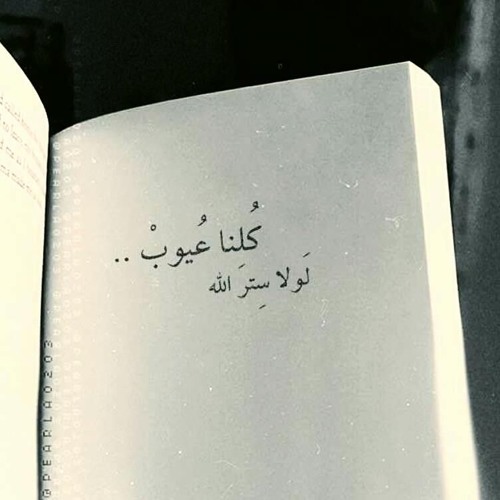 كُلنا عُيوبْ ..
لَولا سِترَ الله
@PEARLA0203